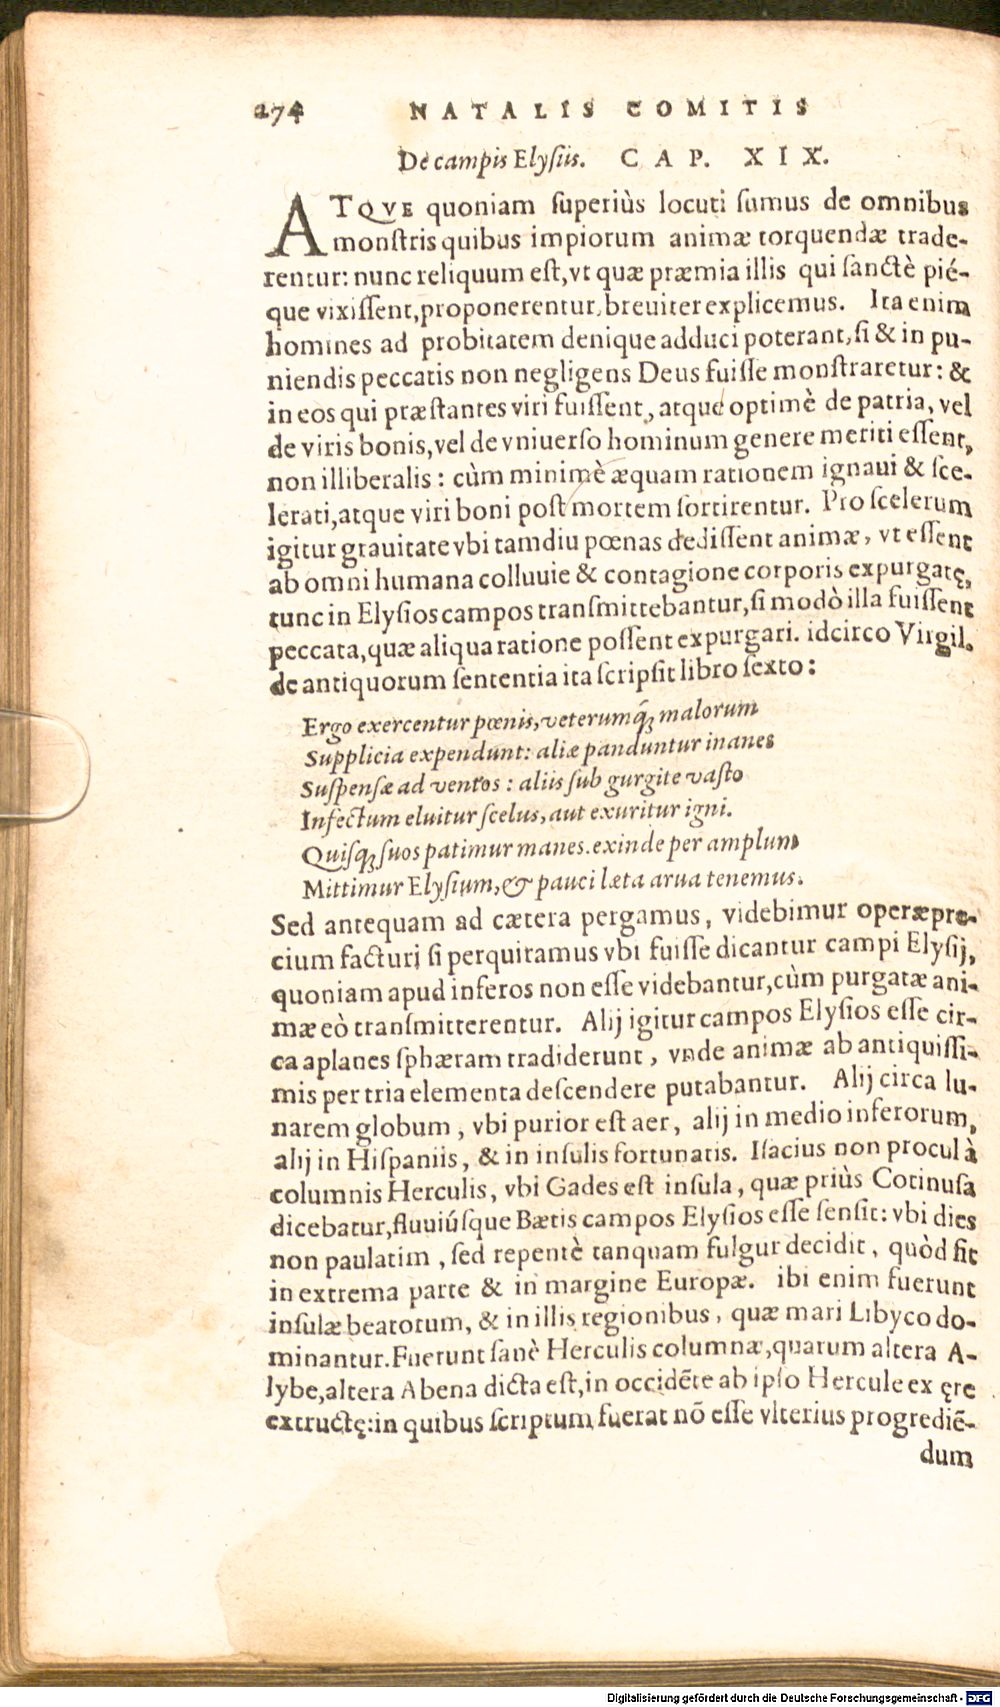 274 NATALIS COMITIS
De campis Elysiis. CAP. XIX.
ATQVE quoniam superiùs locuti sumus de omnibus
monstris quibus impiorum animæ torquendæ trade-
rentur: nunc reliquum est, vt quæ præmia illis qui sanctè pié-
que vixissent, proponerentur, breuiter explicemus. Ita enim
homines ad probitatem denique adduci poterant, si & in pu-
niendis peccatis non negligens Deus fuisse monstraretur: &
in eos qui præstantes viri fuissent, atque optimè de patria, vel
de viris bonis, vel de vniuerso hominum genere meriti essent,
non illiberalis: cùm minimè æquam rationem ignaui & sce-
lerati, atque viri boni post mortem sortirentur. Pro scelerum
igitur grauitate vbi tamdiu pœnas dedissent animæ, vt essent
ab omni humana colluuie & contagione corporis expurgatę,
tunc in Elysios campos transmittebantur, si modò illa fuissent
peccata, quæ aliqua ratione possent expurgari. idcirco Virgil.
de antiquorum sententia ita scripsit libro sexto:
Ergo exercentur pœnis, veterumq́ꝫ malorum
Supplicia expendunt: aliæ panduntur inanes
Suspensæ ad ventos: aliis sub gurgite vasto
Infectum eluitur scelus, aut exuritur igni.
Quisqꝫ suos patimur manes. exinde per amplum
Mittimur Elysium, & pauci læta arua tenemus.
Sed antequam ad cætera pergamus, videbimur operæpre-
cium facturi si perquiramus vbi fuisse dicantur campi Elysij,
quoniam apud inferos non esse videbantur, cùm purgatæ ani-
mæ eò transmitterentur. Alij igitur campos Elysios esse cir-
ca aplanes sphæram tradiderunt, vnde animæ ab antiquissi-
mis per tria elementa descendere putabantur. Alij circa lu-
narem globum, vbi purior est aer, alij in medio inferorum,
alij in Hispaniis, & in insulis fortunatis. Isacius non procul à
columnis Herculis, vbi Gades est insula, quæ priùs Cotinusa
dicebatur, fluuiúsque Bætis campos Elysios esse sensit: vbi dies
non paulatim, sed repentè tanquam fulgur decidit, quòd sit
in extrema parte & in margine Europæ. ibi enim fuerunt
insulæ beatorum, & in illis regionibus, quæ mari Libyco do-
minantur. Fuerunt sanè Herculis columnæ, quarum altera A-
lybe, altera Abena dicta est, in occidẽte ab ipso Hercule ex ęre
extructę: in quibus scriptum fuerat nõ esse vlterius progrediẽ-
dum
Digitalisierung gefördert durch die Deutsche Forschungsgemeinschaft - DFG